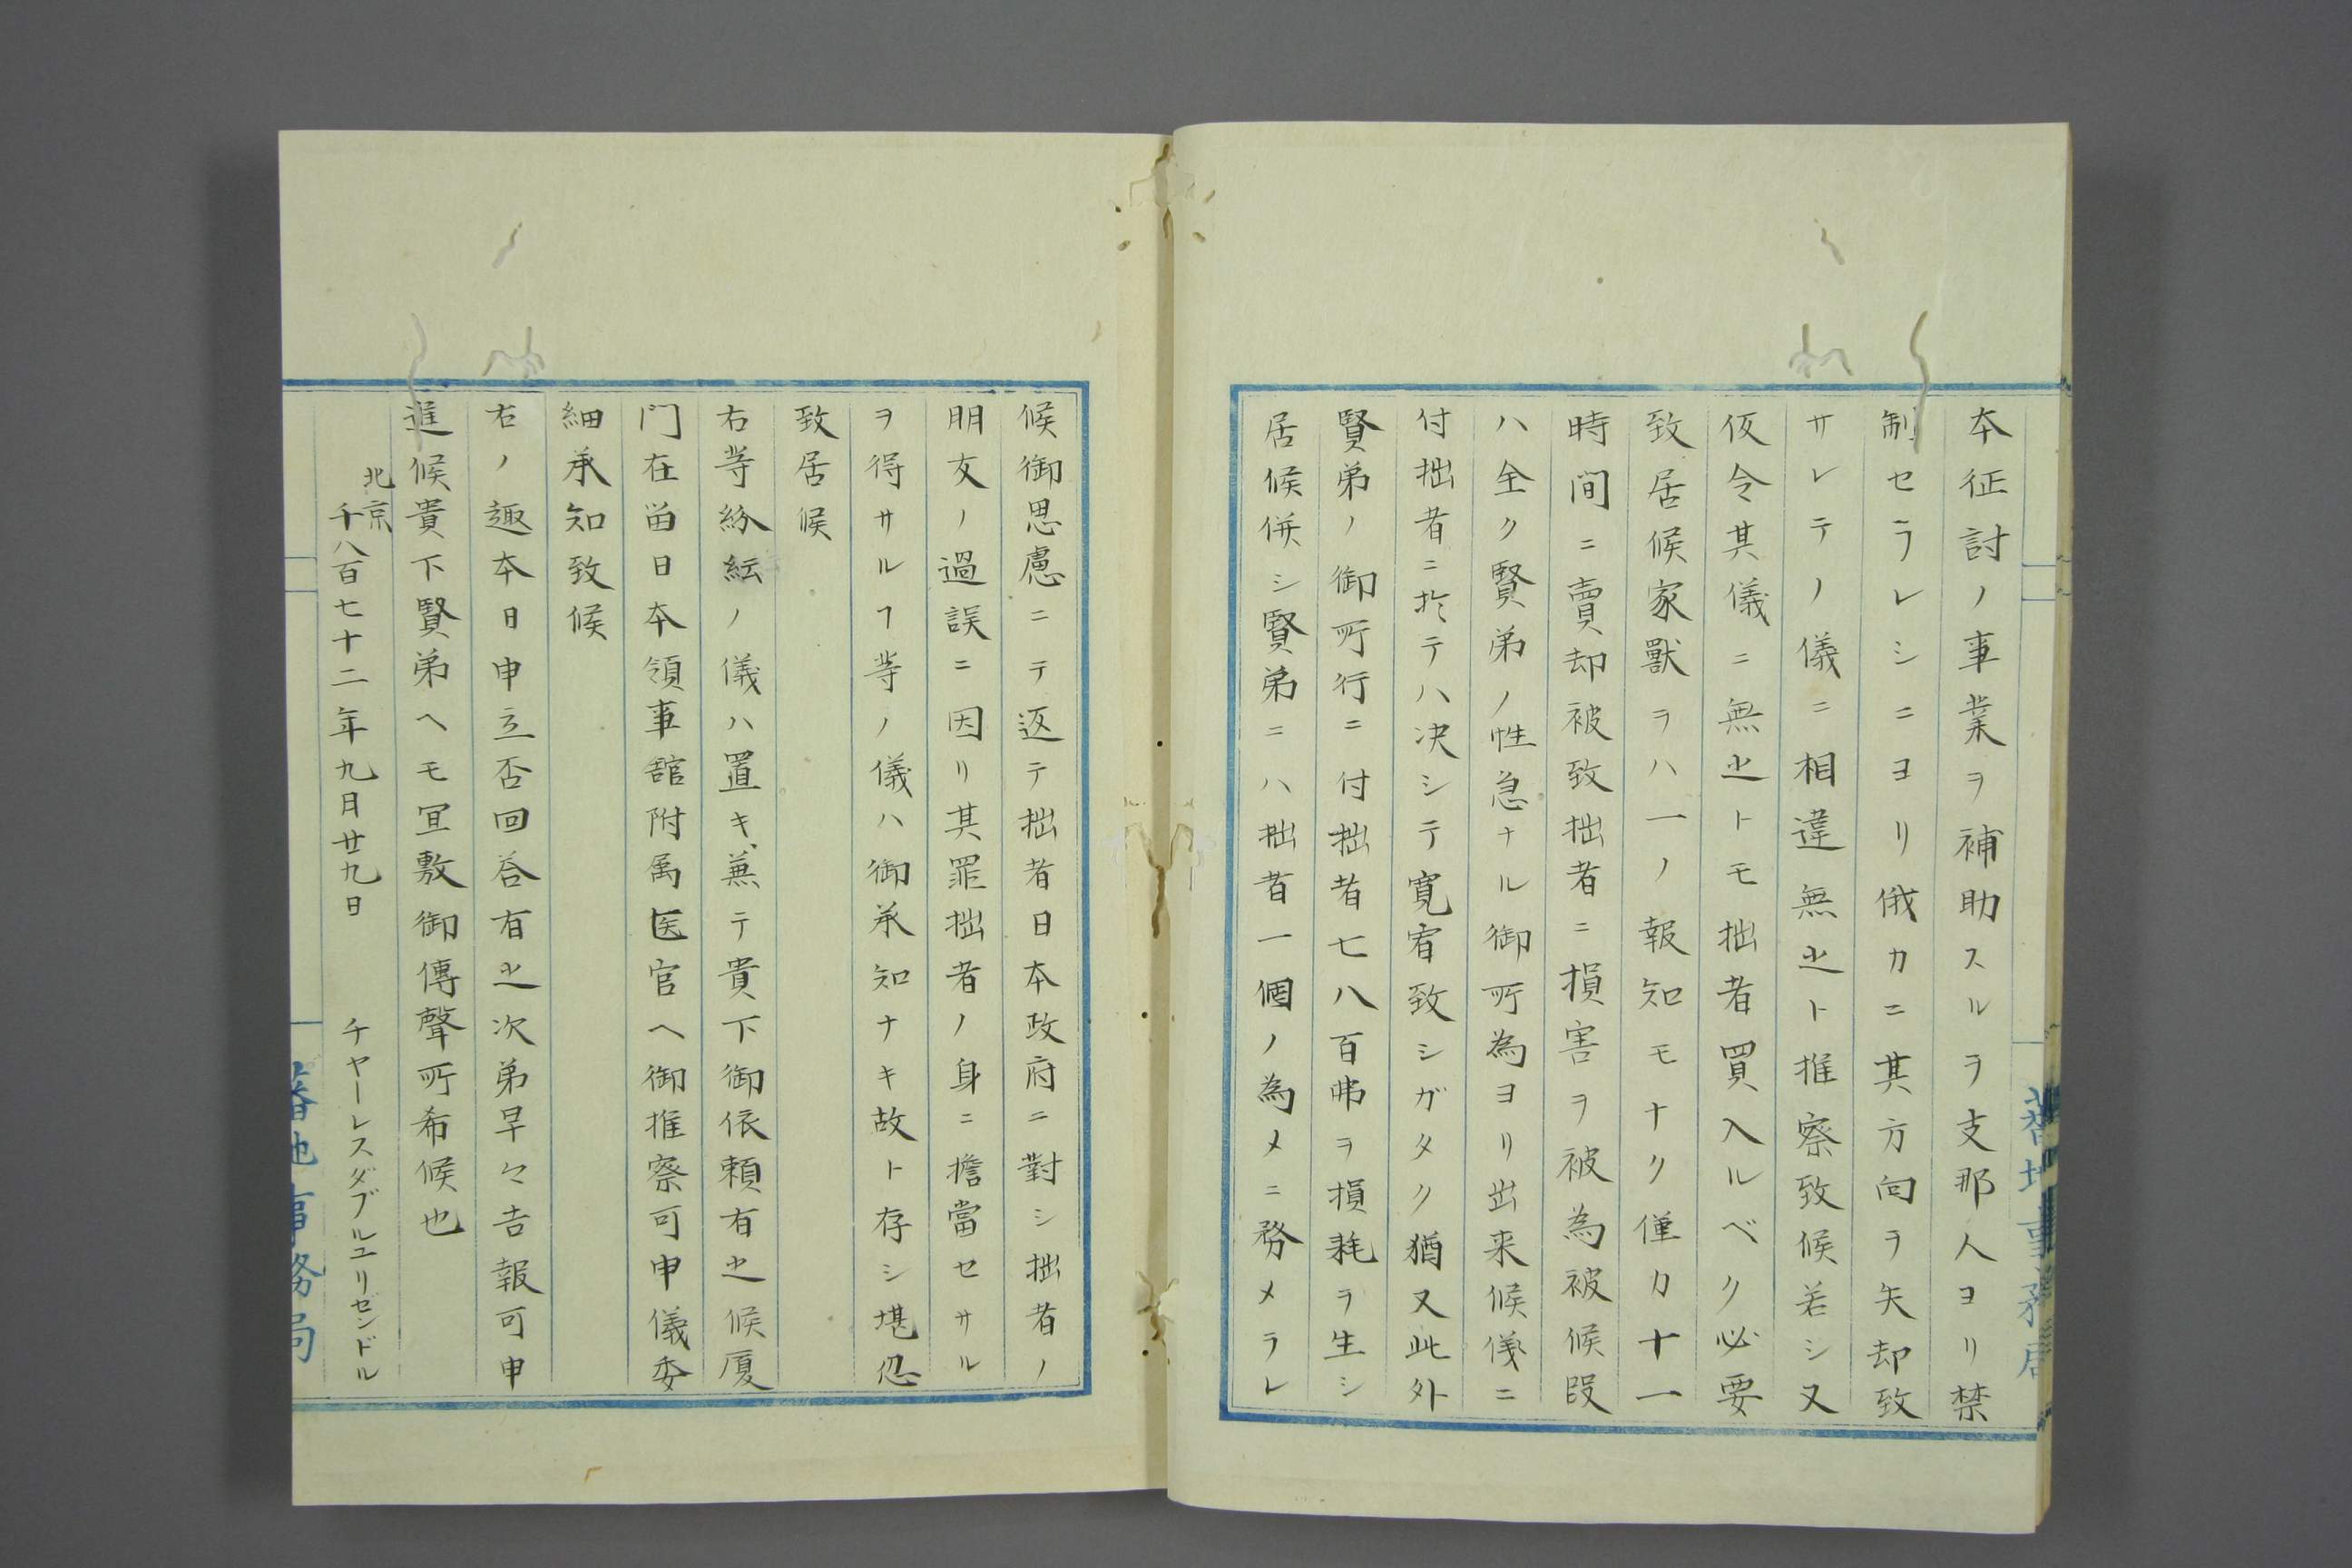 本征討ノ事業ヲ補助スルヲ支那人ヨリ禁
制セラレシニヨリ俄カニ其方向ヲ失却致
サレテノ儀ニ相違無之ト推察致候若シ又
仮令其儀ニ無之トモ拙者買入ルベク必要
致居候家獣ヲハ一ノ報知モナク僅カ十一
時間ニ賣却被致拙者ニ損害ヲ被為被候段
ハ全ク賢弟ノ性急ナル御所為ヨリ出来候儀ニ
付拙者ニ於テハ决シテ寛宥致シガタク猶又此外
賢弟ノ御所行ニ付拙者七八百弗ヲ損耗ヲ生シ
居候併シ賢弟ニハ拙者一個ノ為メニ務メラレ
候御思慮ニテ返テ拙者日本政府ニ對シ拙者ノ
朋友ノ過誤ニ因リ其罪拙者ノ身ニ擔當セサル
ヲ得サルヿ等ノ儀ハ御承知ナキ故ト存シ堪忍
致居候
右等紛紜ノ儀ハ置キ兼テ貴下御依頼有之候厦
门在畄日本領事舘附属医官ヘ御推察可申儀委
細承知致候
右ノ趣本日申立否回答有之次第早々吉報可申
進候貴下賢弟ヘモ宜敷御傳聲所希候也
北京
千八百七十二年九月廿九日 チヤーレスダブルユリゼンドル
蕃地事務局
蕃地事務局